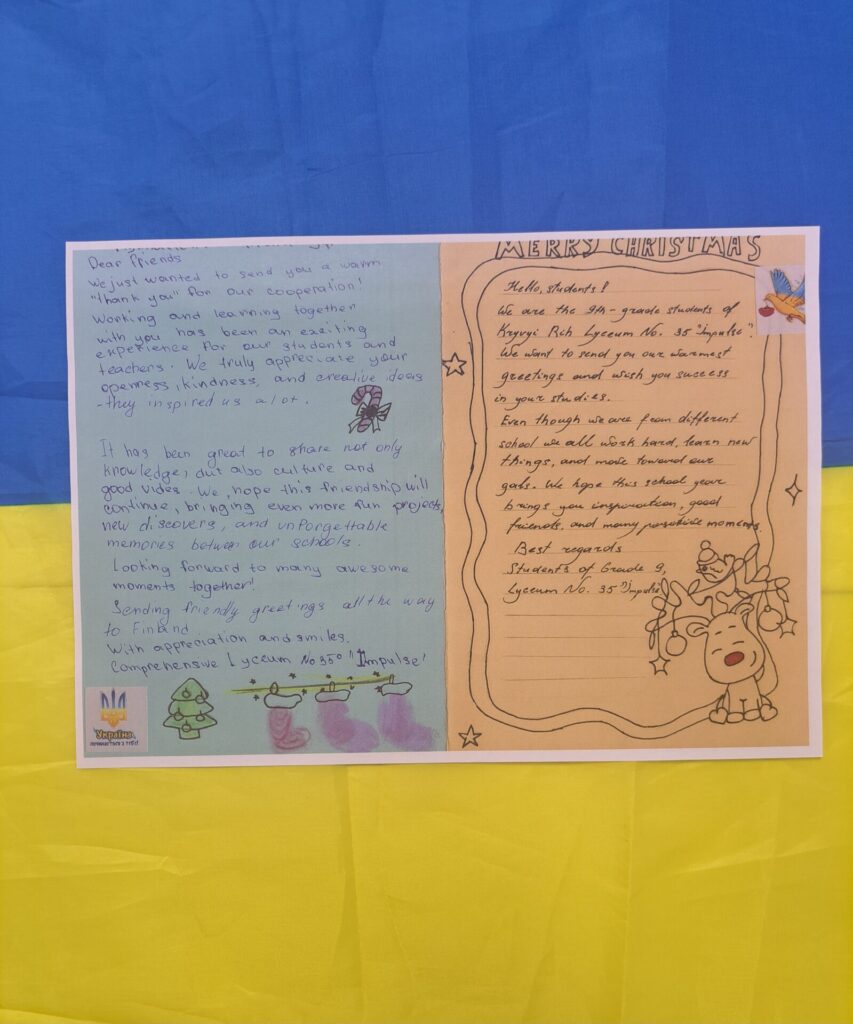 Dear Friends
We just wanted to send you a warm
"Thank you" for our cooperation!
Working and learning together
with you has been an exciting
experience for our students and
teachers. We truly appreciate your
openness, kindness, and creative ideas
- they inspired us a lot.
It has been great to share not only
knowledge, but also culture and
good vides. We hope this friendship will
continue, bringing even more fun projects,
new discovers, and unforgettable
memories betwen our schools.
Looking forward to many awesome
moments together!
Sending friendly greetings all the way
to Finland
With appreciation and smiles,
Comprehensive Lyceum No 35 "Impulse"
Україна
починається з тебе
MERRY CHRISTMAS
Hello, students!
We are the 9th-grade students of
Kryvyi Rih Lyceum No. 35 "Impulse".
We want to send you our warmest
greetings and wish you success
in your studies.
Even though we are from different
school we all work hard, learn new
things, and move toward our
goals. We hope this school year
brings you inspiration, good
friends, and many positive moments.
Best regards
Students of Grade 9,
Lyceum No. 35 "Impulse"